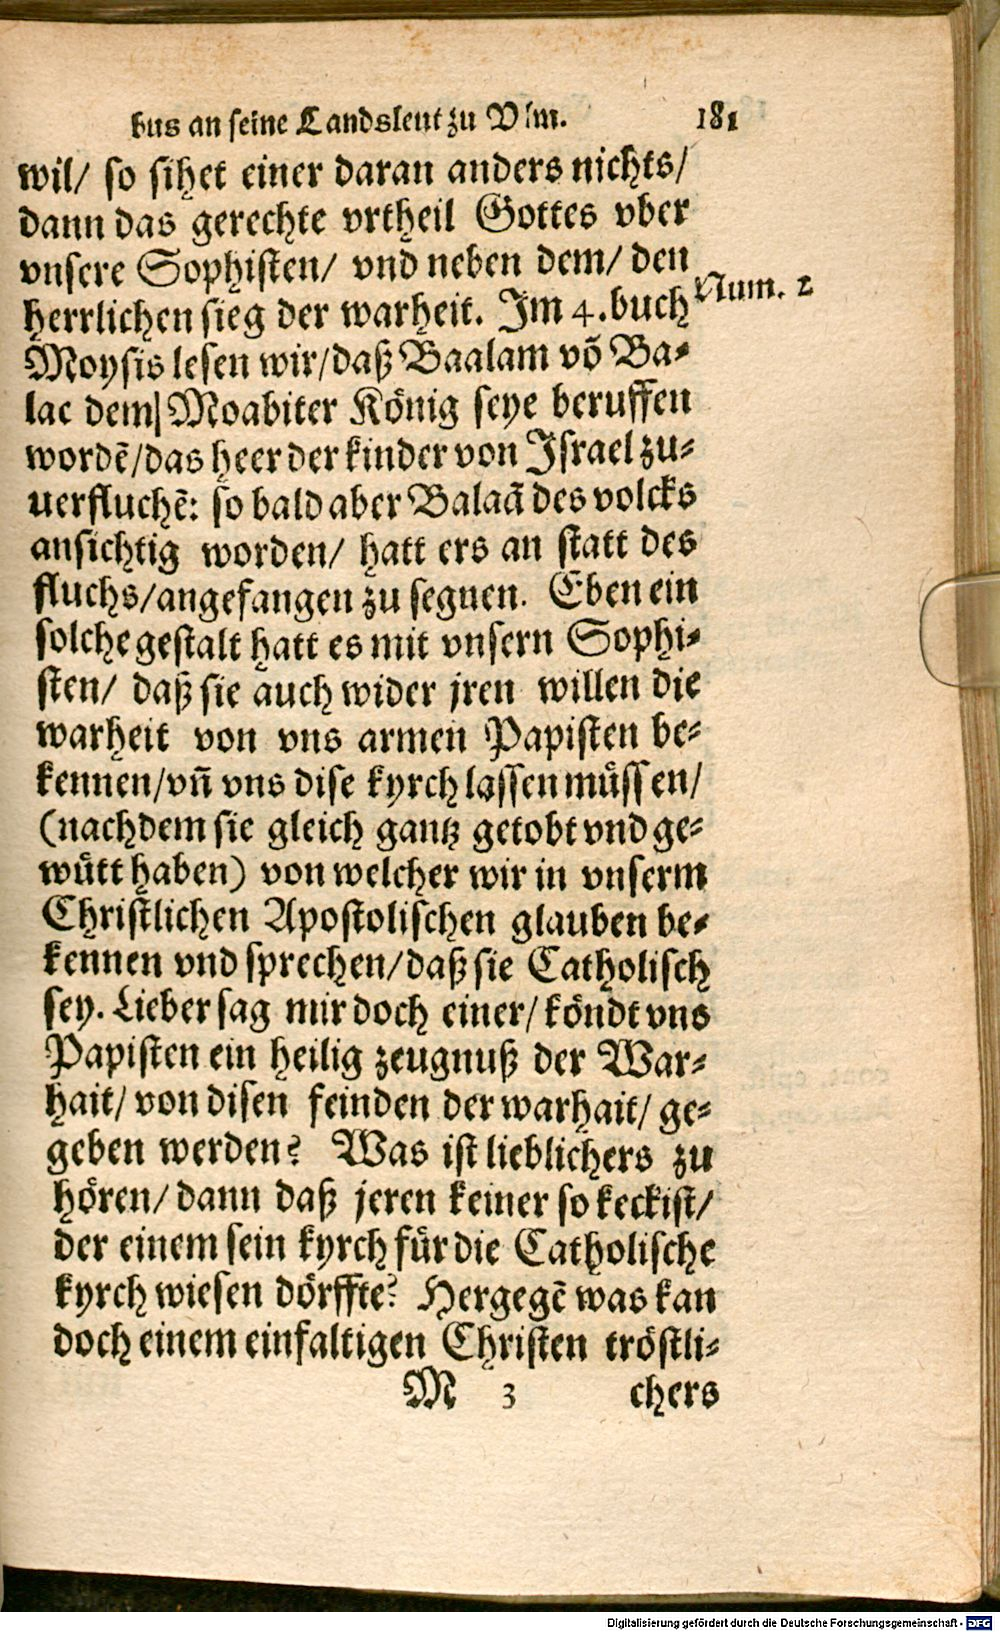 bus an seine Landsleut zu Vlm. 181
wil/ so sihet einer daran anders nichts/
dann das gerechte vrtheil Gottes vber
vnsere Sophisten/ vnd neben dem/ den
herrlichen sieg der warheit. Im 4. buch Num. 2
Moysis lesen wir/daß Baalam võ Ba-
lac dem Moabiter König seye beruffen
wordẽ/das heer der kinder von Israel zu-
uerfluchẽ: so bald aber Balaã des volcks
ansichtig worden/ hatt ers an statt des
fluchs/angefangen zu segnen. Eben ein
solche gestalt hatt es mit vnsern Sophi-
sten/ daß sie auch wider jren willen die
warheit von vns armen Papisten be-
kennen/vñ vns dise kyrch lassen müssen/
(nachdem sie gleich gantz getobt vnd ge-
wütt haben) von welcher wir in vnserm
Christlichen Apostolischen glauben be-
kennen vnd sprechen/daß sie Catholisch
sey. Lieber sag mir doch einer/ köndt vns
Papisten ein heilig zeugnuß der War-
hait/ von disen feinden der warhait/ ge-
geben werden? Was ist lieblichers zu
hören/ dann daß jeren keiner so keck ist/
der einem sein kyrch für die Catholische
kyrch wiesen dörffte? Hergegẽ was kan
doch einem einfaltigen Christen tröstli-
M 3 chers
Digitalisierung gefördert durch die Deutsche Forschungsgemeinschaft - DFG